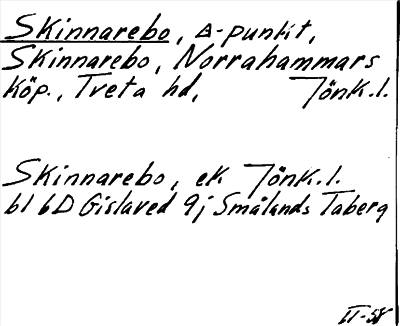 Skinnarebo, △-punkt,
Skinnarebo, Norrahammars
köp., Tveta hd, Jönk.l.
Skinnarebo, ek Jönk.l.
bl 6D Gislaved 9j Smålands Taberg
II-58